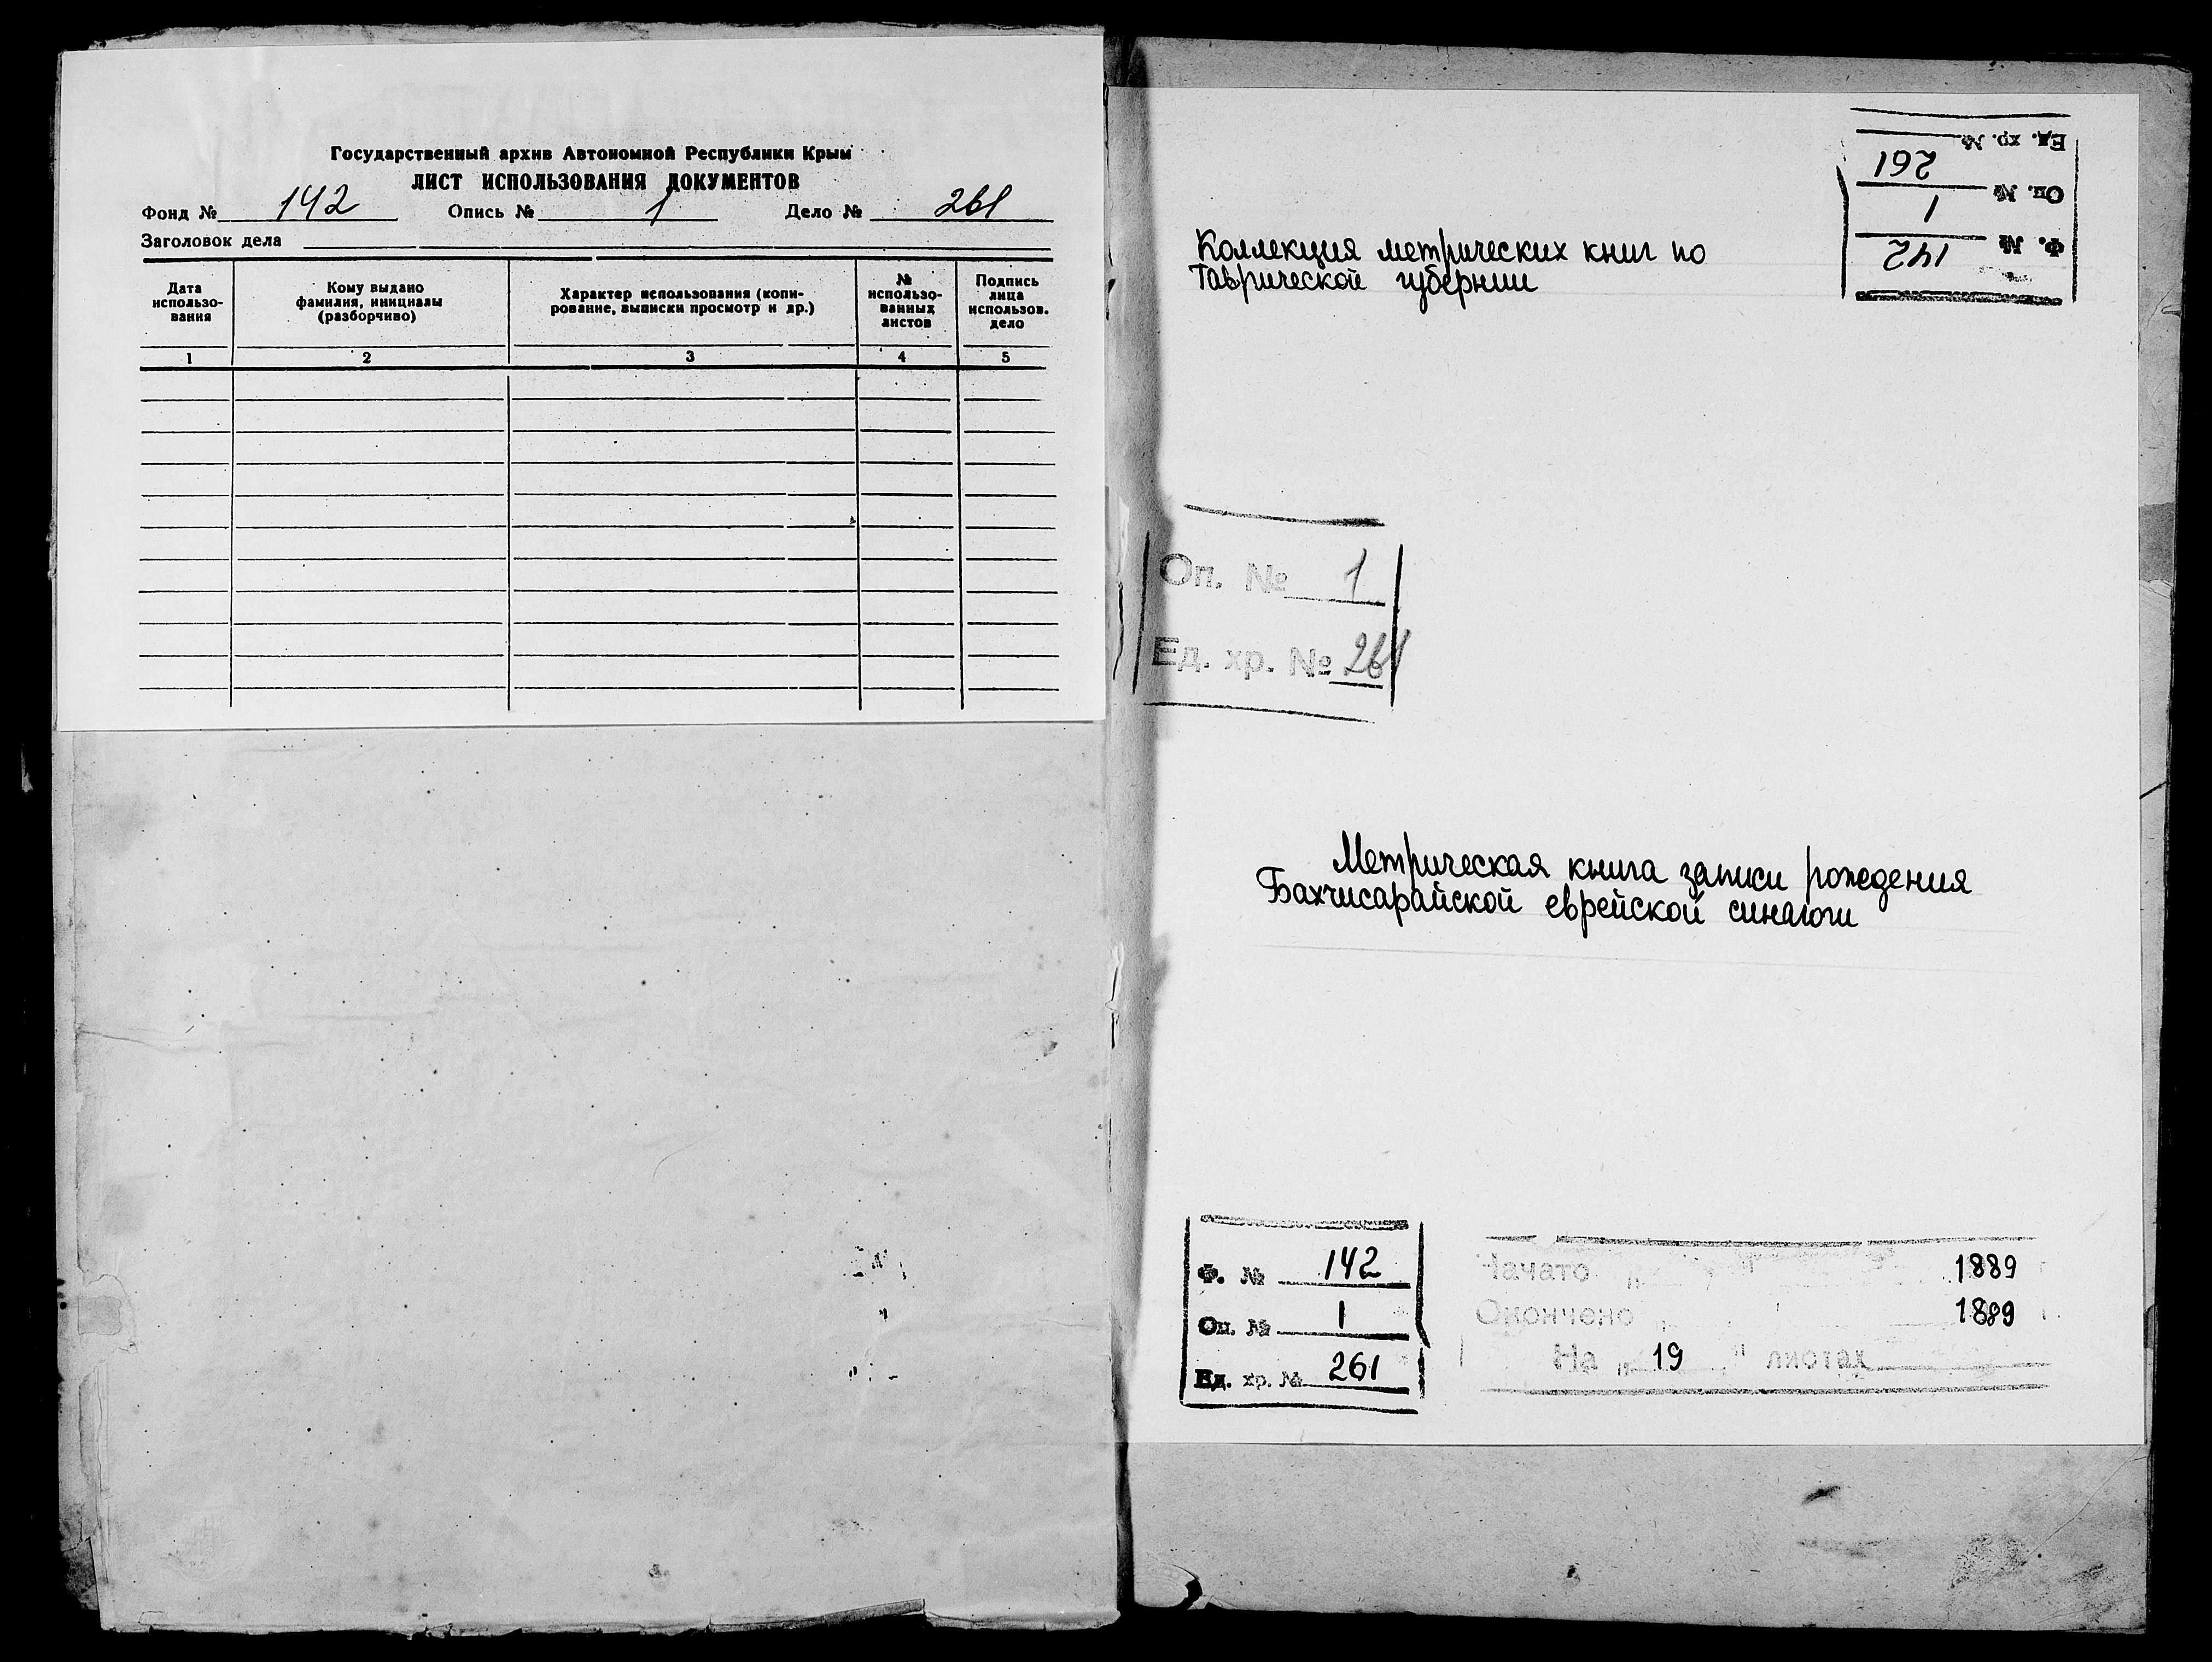 Государственный архив Автономной Республики Крым
ЛИСТ ИСПОЛЬЗОВАНИЯ ДОКУМЕНТОВ
Фонд № 142 Опись № 1 Дело № 261
Заголовок дела
Дата использо-вания
Кому выдано фамилия, инициалы (разборчиво)
Характер использования (копи-рование, выписки просмотр и др.)
№ использо-ванных листов
Подпись лица использов. дело
1 2 3 4 5
Ед. хр. № 261
Оп. № 1
Ф. № 142
Коллекция метрических книг по
Таврической губернии
Оп. № 1
Ед. хр. № 261
Метрическая книга записи рождения
Бахчисарайской еврейской синагоги
Ф. № 142
Оп. № 1
Ед. хр. № 261
Начато " " 1889 г.
Окончено " 1889 г.
На " 19 " листах